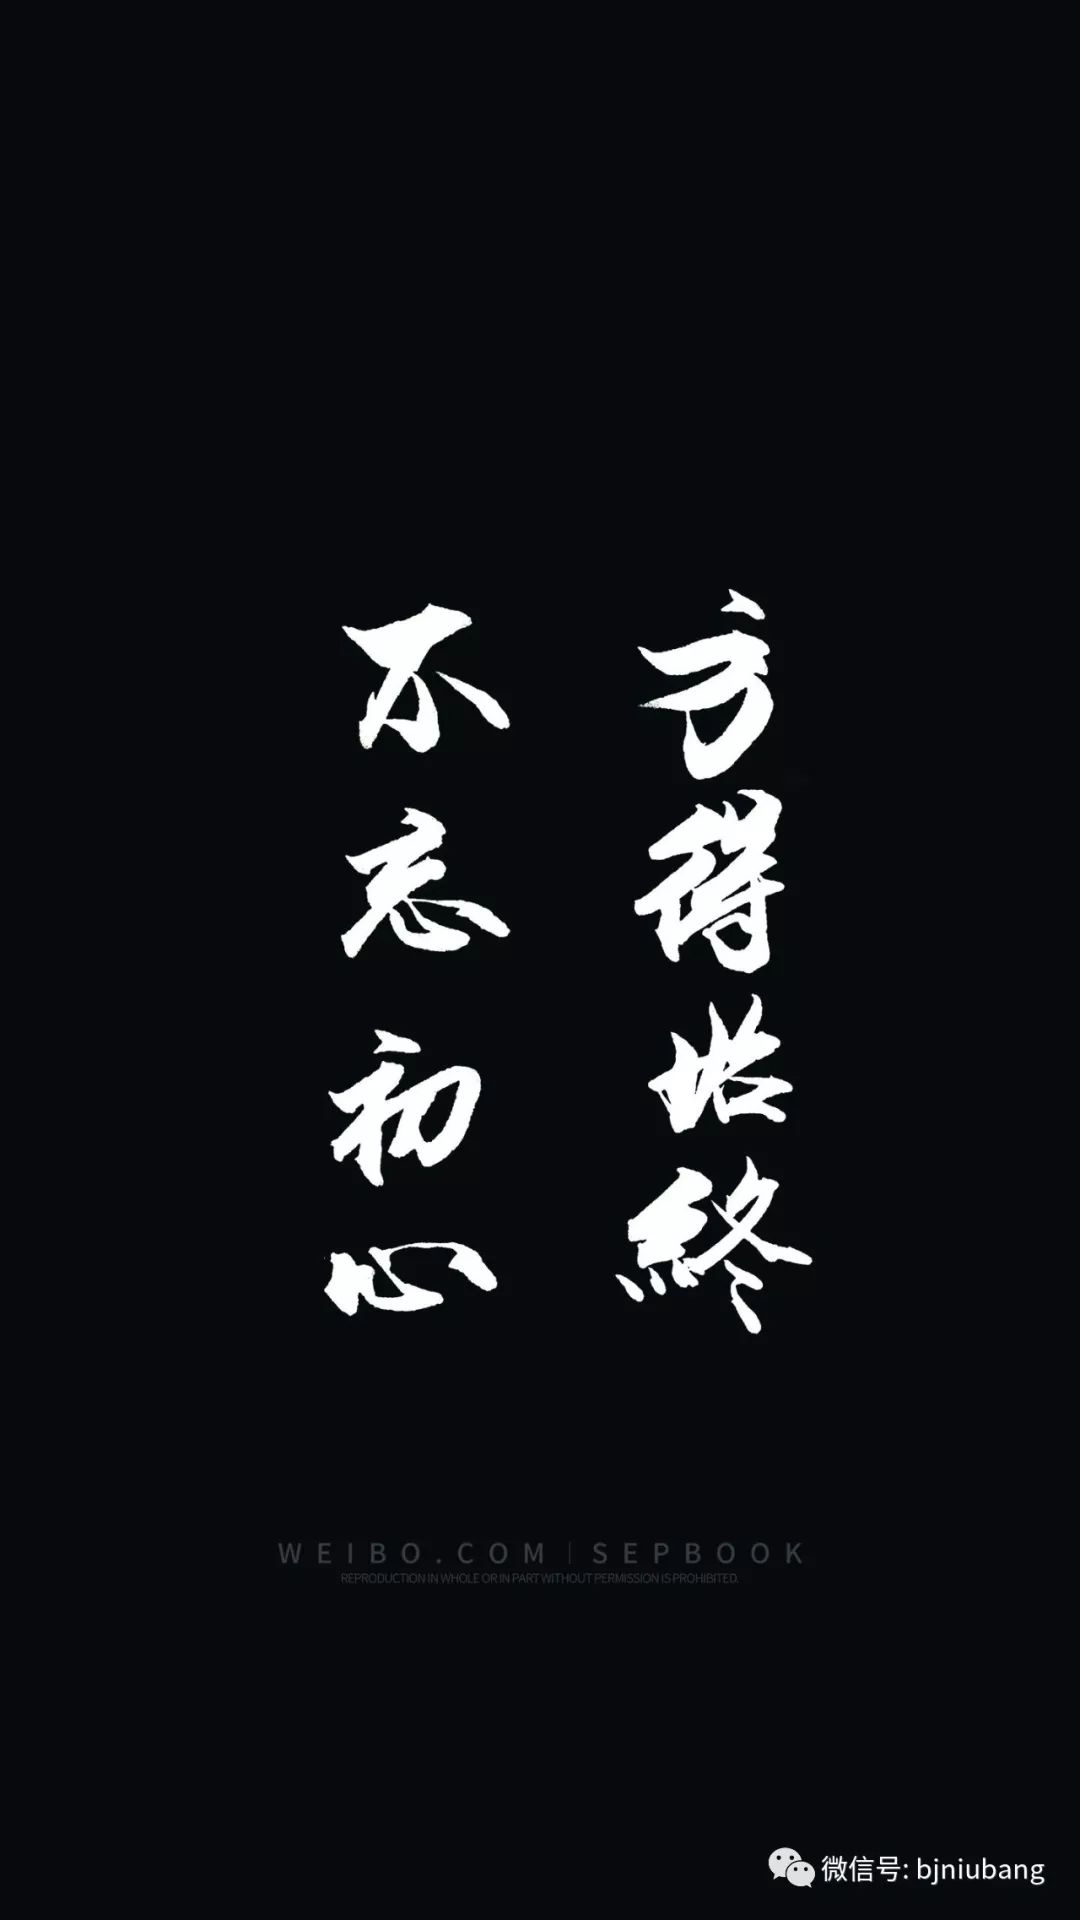 不忘初心
方得始終
WEIBO.COM | SEPBOOK
REPRODUCTION IN WHOLE OR IN PART WITHOUT PERMISSION IS PROHIBITED.
微信号: bjniubang